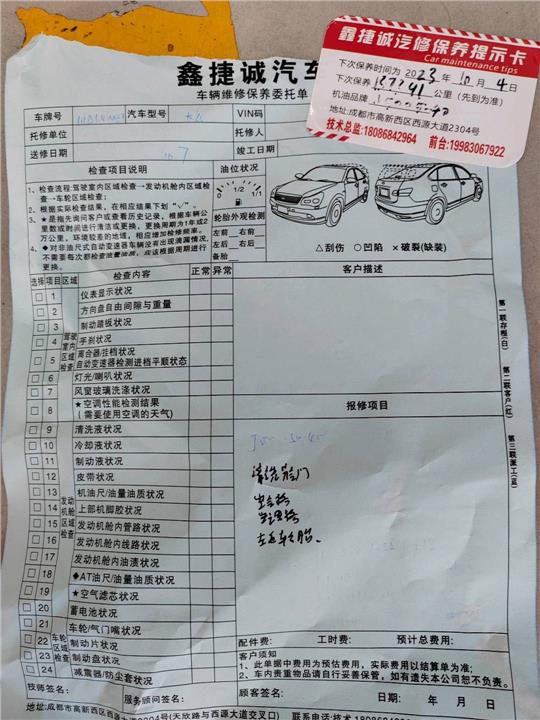 鑫捷诚汽车
车辆维修保养委托单
鑫捷诚汽修保养提示卡
Car maintenance tips
下次保养时间为 2023 年 10 月 4 日
下次保养 公里（先到为准）
机油品牌
地址:成都市高新西区西源大道2304号
技术总监:18086842964 前台:19983067922
车牌号
汽车型号
VIN码
托修单位
托修人
送修日期
7
竣工日期
检查项目说明
油位状况
1、检查流程:驾驶室内区域检查→发动机舱内区域检查
→车轮区域检查。
2、根据实际检查结果，在相应结果下划“√”。
3、★是指先询问客户或查看历史记录，根据车辆公
里数或时间进行清洁或更换，更换周期为1年或2
万公里，环境较差的地域，相应增加检修频率。
4、◆对非油尺式自动变速器车辆没有出现滴漏情况，
不需要每次都检查油量油质，应该根据周期进行
更换。
1/2
1/1
轮胎外观检测
左前 右前
左后 右后
备胎
△刮伤 ○凹陷 ×破裂(缺装)
选择 项目 区域 检查内容 正常 异常
客户描述
驾驶室内区域检查
1 仪表显示状况
2 方向盘自由间隙与重量
3 制动踏板状况
4 手刹状况
5 离合器/挂档状况
自动变速器检测进档平顺状态
6 灯光/喇叭状况
7 风窗玻璃洗涤状况
8 ★空调性能检测结果
(需要使用空调的天气)
报修项目
发动机舱区域检查
9 清洗液状况
10 冷却液状况
11 制动液状况
12 皮带状况
13 机油尺/油量油质状况
14 上部机脚胶状况
15 发动机舱内管路状况
16 发动机舱内线路状况
17 发动机舱内油渍状况
18 ◆AT油尺/油量油质状况
19 ★空气滤芯状况
20 蓄电池状况
车轮区域检查
21 车轮/气门嘴状况
22 制动片状况
23 制动盘状况
24 减震器/防尘套状况
清洗节气门
空气格
空调格
第一联存根(白)
第二联客户(红)
第三联派工(蓝)
配件费: 工时费: 预计总费用:
客户须知
1、此单据中费用为预估费用，实际费用以结算单为准;
2、车内贵重物品请自行妥善保管，如有遗失本公司恕不负责。
技师签名: 服务顾问签名: 顾客签名: 日期: 年 月 日
地址:成都市高新西区西源大道2304号(天欣路与西源大道交叉口) 联系电话:技术